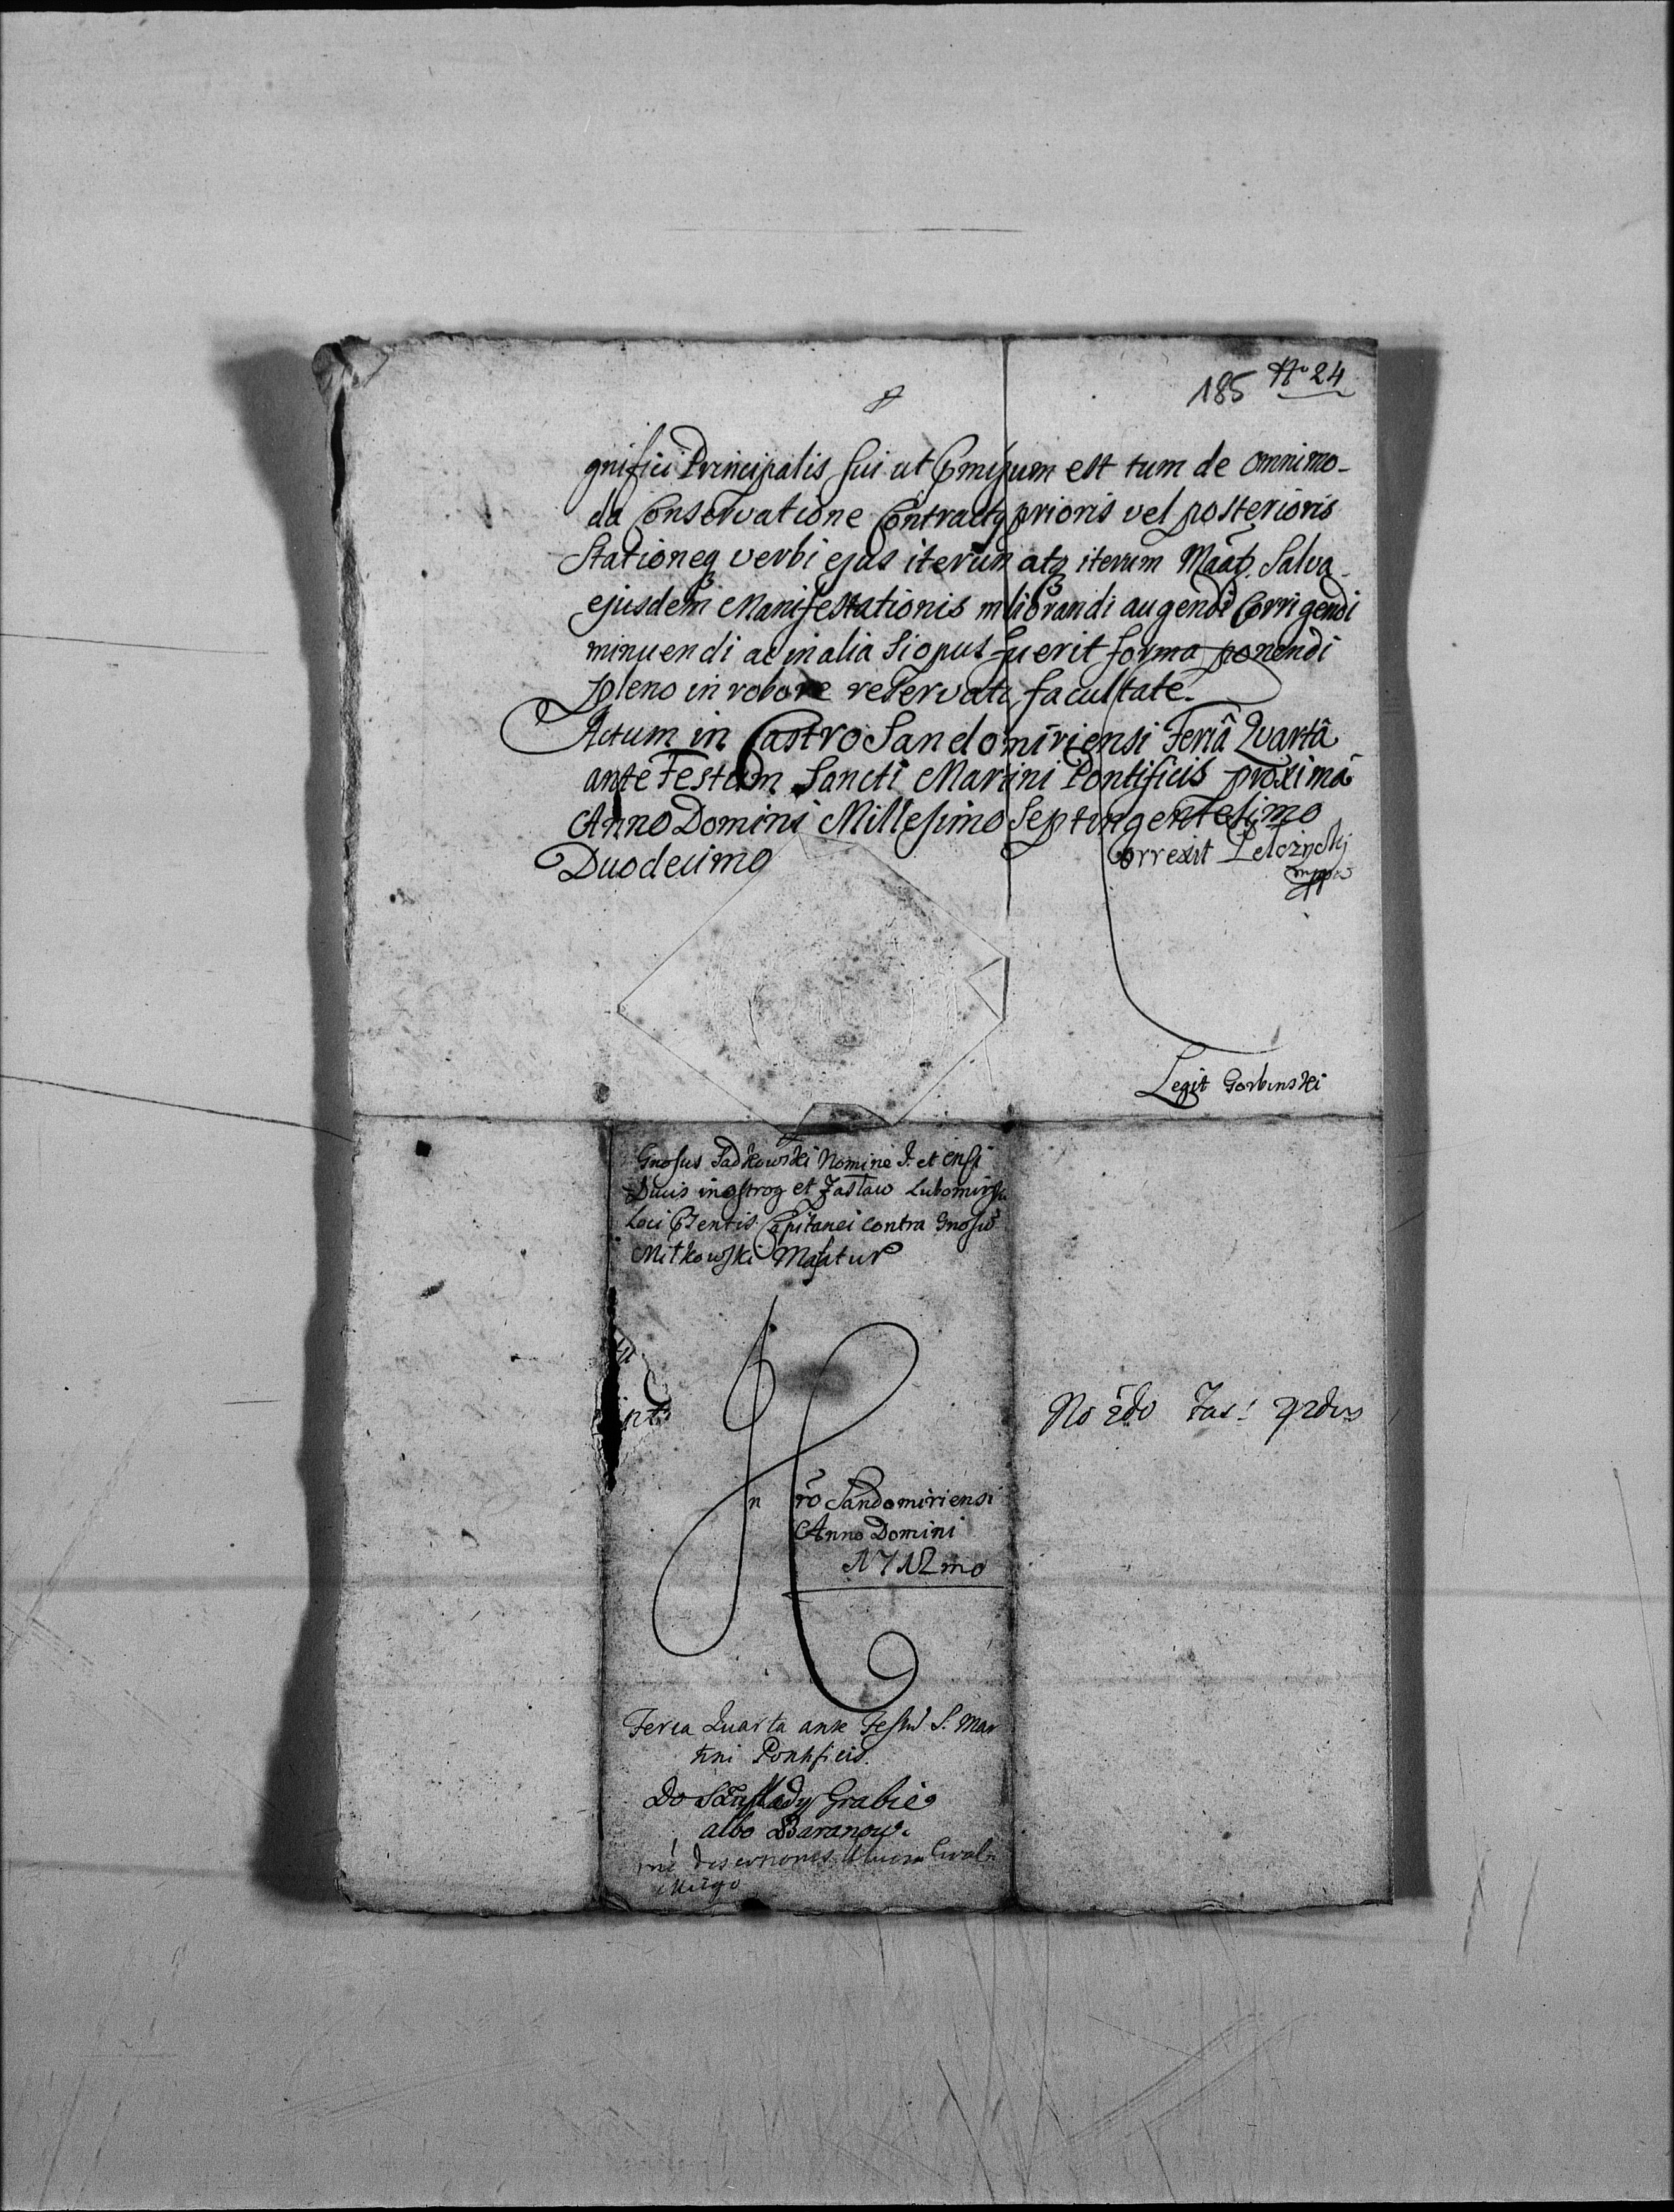 185 No 24
gnifici Principalis sui ut Pmissum est tum de omnimo-
da Conservatione Contractq prioris vel posterioris
Stationeq verbi ejus iterum atq iterum Maāt. Salva
ejusdem Manifestationis meliorandi augendi Corrigendi
minuendi ac in alia si opus fuerit forma ponendi
pleno in robore reservata facultate.
Actum in Castro Sandomiriensi Feriâ Quartâ
ante Festum Sancti Martini Pontificis proximâ
Anno Domini Millesimo Septingentesimo
Duodecimo
Correxit Lelczycki
mppa
Legit Gorbinski
Gnosus Sadkowski Nomine I. et Cnsi
Ducis in Ostrog et Zaslaw Lubomirski
Loci Ptentis Capitanei contra Gnosū
Mitkowski Maśatur
In
ro Sandomiriensi
Anno Domini
1712mo
No 2do Fas:
Feria Quarta ante Festū S. Mar
tini Pontificis.
Do Grabie
albo Baranow.